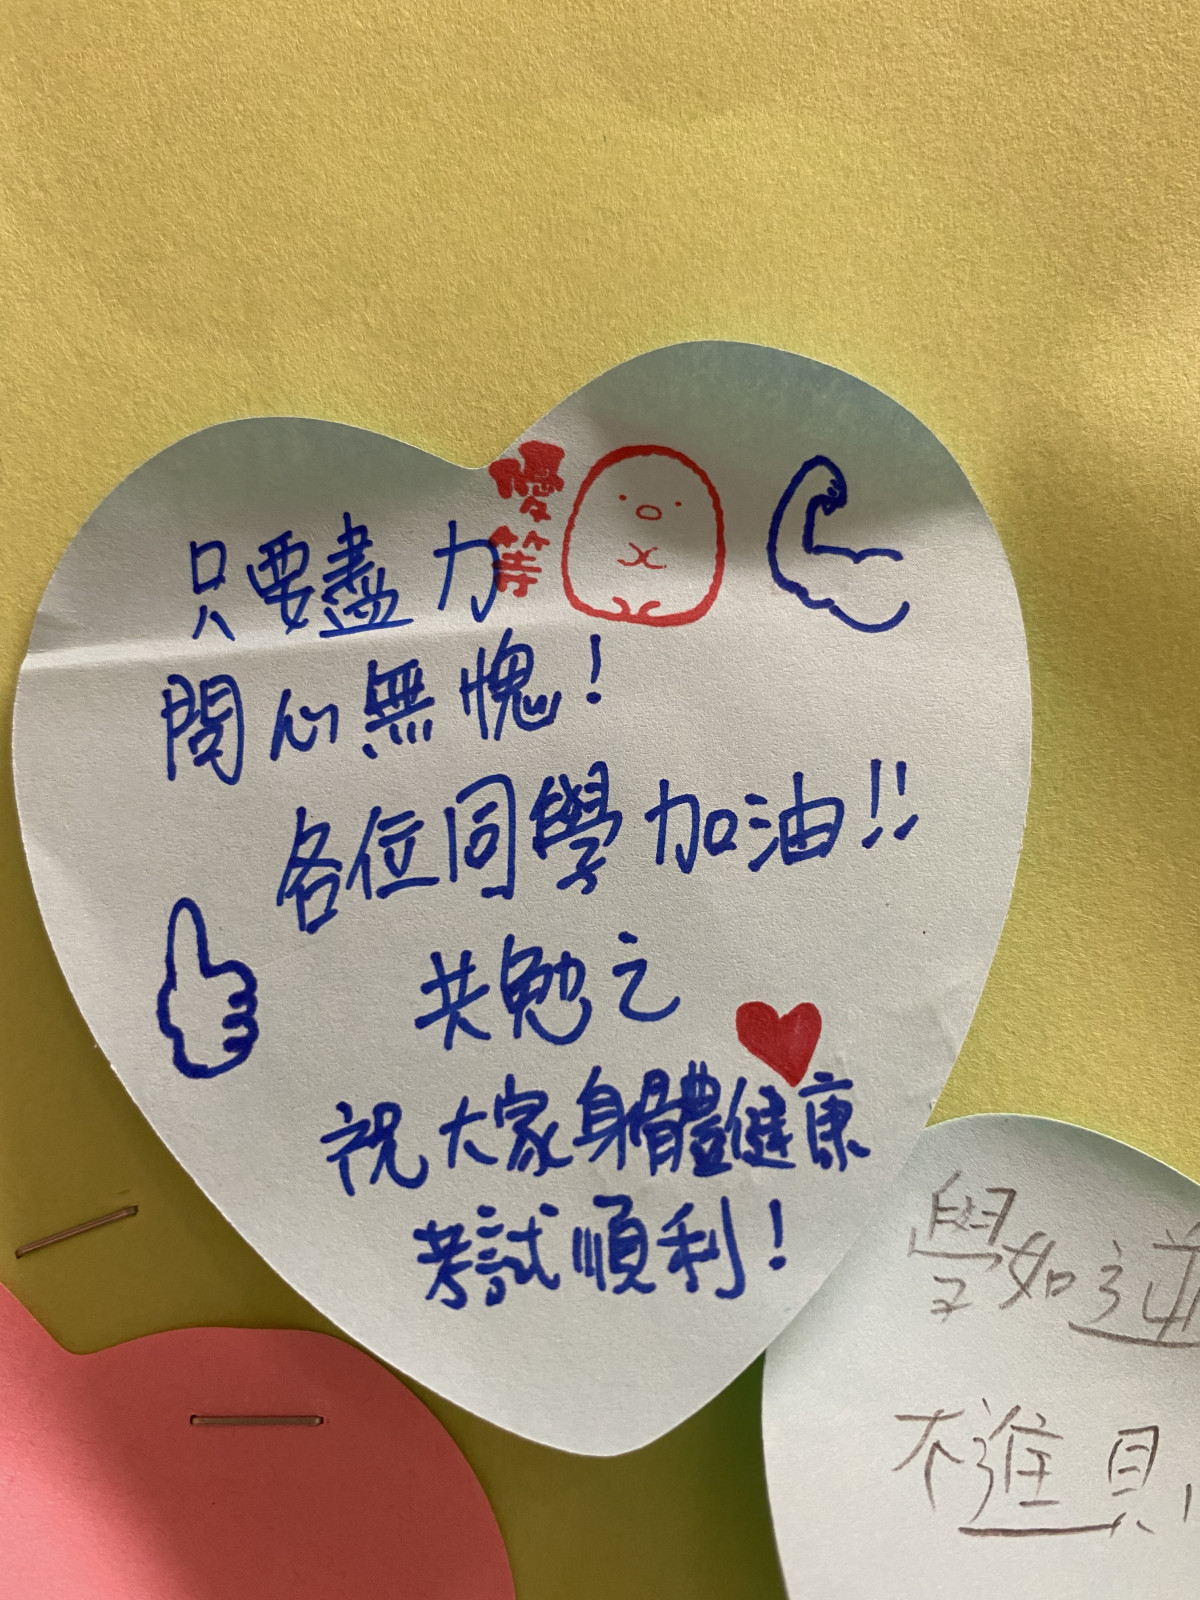 優等
只要盡力
問心無愧！
各位同學加油!!
共勉之
祝大家身體健康
考試順利！
學如逆
不進則